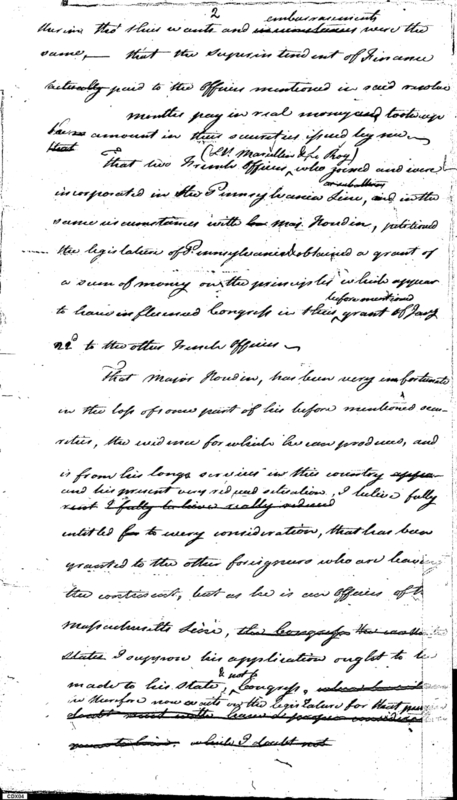 2
embarrassments
during tho' their wants and circumstances were the
same, — that the Superintendent of Finance
actually paid to the Officers mentioned in said resolve
months pay in real money and took up
the same amount in their securities issued by me —
that
(Lts. & Le Roy)
That two French Officers, who joined and were
as subaltern
incorporated in the Pennsylvania Line, and in the
same circumstances with Maj. Noudin, petitioned
the legislature of Pennsylvania & obtained a grant of
a sum of money on the principles which appear
before mentioned
to have influenced Congress in their grant of Jany
22d to the other French Officers —
That Major Noudin, has been very unfortunate
in the loss of some part of his before mentioned secu-
rities, the evidence for which he can produce, and
is from his long services in this country appea-
and his present very reduced situation, I believe fully
rent I fully believe really reduced
entitled to every consideration, that has been
granted to the other foreigners who are leaving
the continent; but as he is an Officer of the
Massachusetts Line, the Congress
States I suppose his application ought to be
& not to
made to his State, Congress,
he therefore now waits on the legislature for that
doubt
which I doubt not
CDX04